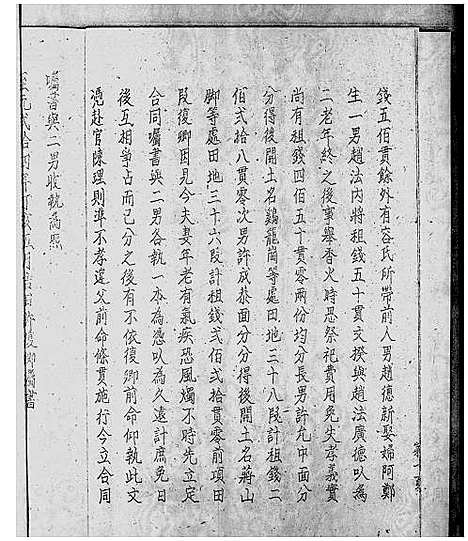 錢五佰貫餘外有容氏所帶前人男趙德新娶婦阿鄭
生一男趙法內將租錢五十貫文撥與趙法廣德以為
二老年終之後事舉香火時恐祭祀費用免失孝義實
尚有租錢四佰五十貫零兩份均分長男許允中面分
分得後開土名鷄籠崗等處田地三十八段計租錢二
佰弍拾八貫零次男許成恭面分分得後開土名蔣山
腳等處田地三十六段計租錢弍佰弍拾貫零前項田
段復卿因見今夫妻年老有氣疾恐風燭不時先立定
合同囑書與二男各執一本為憑以為久遠計庶免日
後互相爭占而已分之後有不依復卿前命仰執此文
憑赴官陳理則準不孝違父前命條貫施行今立合同
囑書與二男收執為照